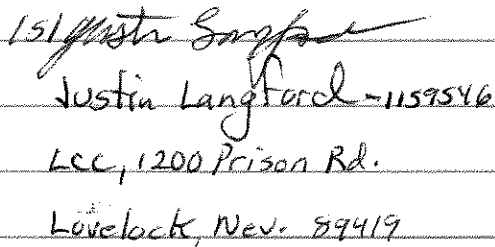 /s/ Justin Langford
Justin Langford-1159546
LCC, 1200 Prison Rd.
Lovelock, Nev. 89419